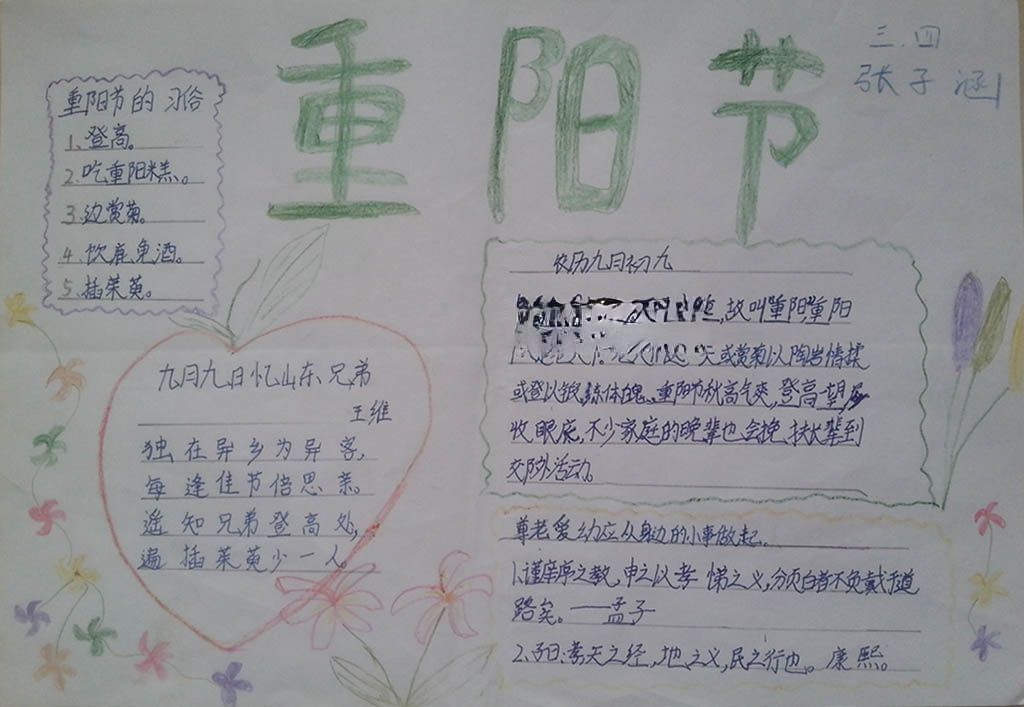 重阳节
三.四
张子涵
重阳节的习俗
1、登高。
2.吃重阳糕。
3.边赏菊。
4.饮鹿龟酒。
5.插茱萸。
九月九日忆山东兄弟
王维
独在异乡为异客,
每逢佳节倍思亲。
遥知兄弟登高处,
遍插茱萸少一人。
农历九月初九
故叫重阳,重阳
天或赏菊以陶岩情操
或登以锻练体魄、重阳节秋高气爽,登高望
收眼底,不少家庭的晚辈也会挽扶长辈到
交阝外活动。
尊老爱幼应从身边的小事做起.
1.谨庠序之教,申之以孝悌之义,分页白者不负戴于道
路矣。——孟子
2.子曰:孝天之经,地之义,民之行也。康熙。